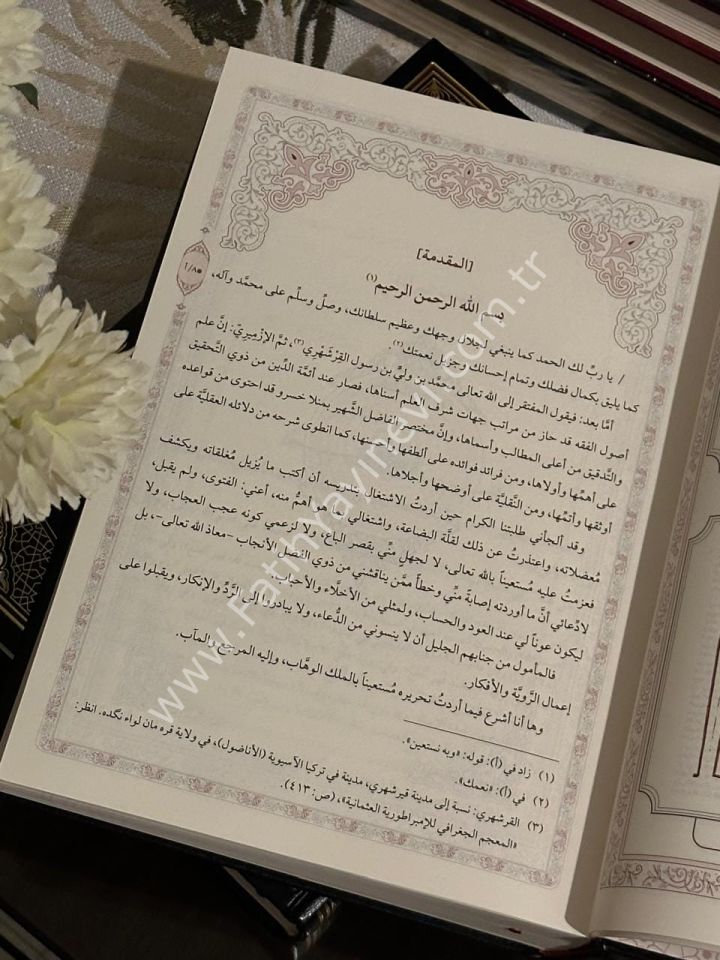 [المقدمة]
بسم الله الرحمن الرحيم(١)
١/٨٥
/ يا ربِّ لك الحمد كما ينبغي لجلال وجهك وعظيم سلطانك، وصلِّ وسلِّم على محمَّد وآله،
كما يليق بكمال فضلك وتمام إحسانك وجزيل نعمتك(٢).
أمَّا بعد: فيقول المفتقر إلى الله تعالى محمَّد بن وليِّ بن رسول القِرْشَهْري(٣)، ثمَّ الإزميريّ: إنَّ علم
أصول الفقه قد حاز من مراتب جهات شرف العلم أسناها، فصار عند أئمَّة الدِّين من ذوي التَّحقيق
والتَّدقيق من أعلى المطالب وأسماها، وإنَّ مختصر الفاضل الشَّهير بمنلا خسرو قد احتوى من قواعده
على أهمِّها وأولاها، ومن فرائد فوائده على ألطفها وأحسنها، كما انطوى شرحه من دلائله العقليَّة على
أوثقها وأتمِّها، ومن النَّقليَّة على أوضحها وأجلاها.
وقد ألجأني طلبتنا الكرام حين أردتُ الاشتغال بتدريسه أن أكتب ما يُزيل مُغلقاته ويكشف
مُعضلاته، واعتذرتُ عن ذلك لقلَّة البضاعة، واشتغالي بما هو أهمُّ منه، أعني: الفتوى، ولم يقبل،
فعزمتُ عليه مُستعيناً بالله تعالى، لا لجهلٍ منِّي بقصر الباع، ولا لزعمي كونه عجب العجاب، ولا
لادِّعائي أنَّ ما أوردته إصابة منِّي وخطأ ممَّن يناقشني من ذوي الفضل الأنجاب -معاذ الله تعالى-، بل
ليكون عوناً لي عند العود والحساب، ولمثلي من الأخلَّاء والأحباب.
فالمأمول من جنابهم الجليل أن لا ينسوني من الدُّعاء، ولا يبادروا إلى الرَّدِّ والإنكار، ويقبلوا على
إعمال الرَّويَّة والأفكار.
وها أنا أشرع فيما أردتُ تحريره مُستعيناً بالملك الوهَّاب، وإليه المرجع والمآب.
(١) زاد في (أ): قوله: «وبه نستعين».
(٢) في (أ): «نعمك».
(٣) القرشهري: نسبة إلى مدينة قيرشهري، مدينة في تركيا الآسيوية (الأناضول)، في ولاية قره مان لواء نگده. انظر:
«المعجم الجغرافي للإمبراطورية العثمانية»، (ص: ٤١٣).
www.FatihYayinevi.com.tr